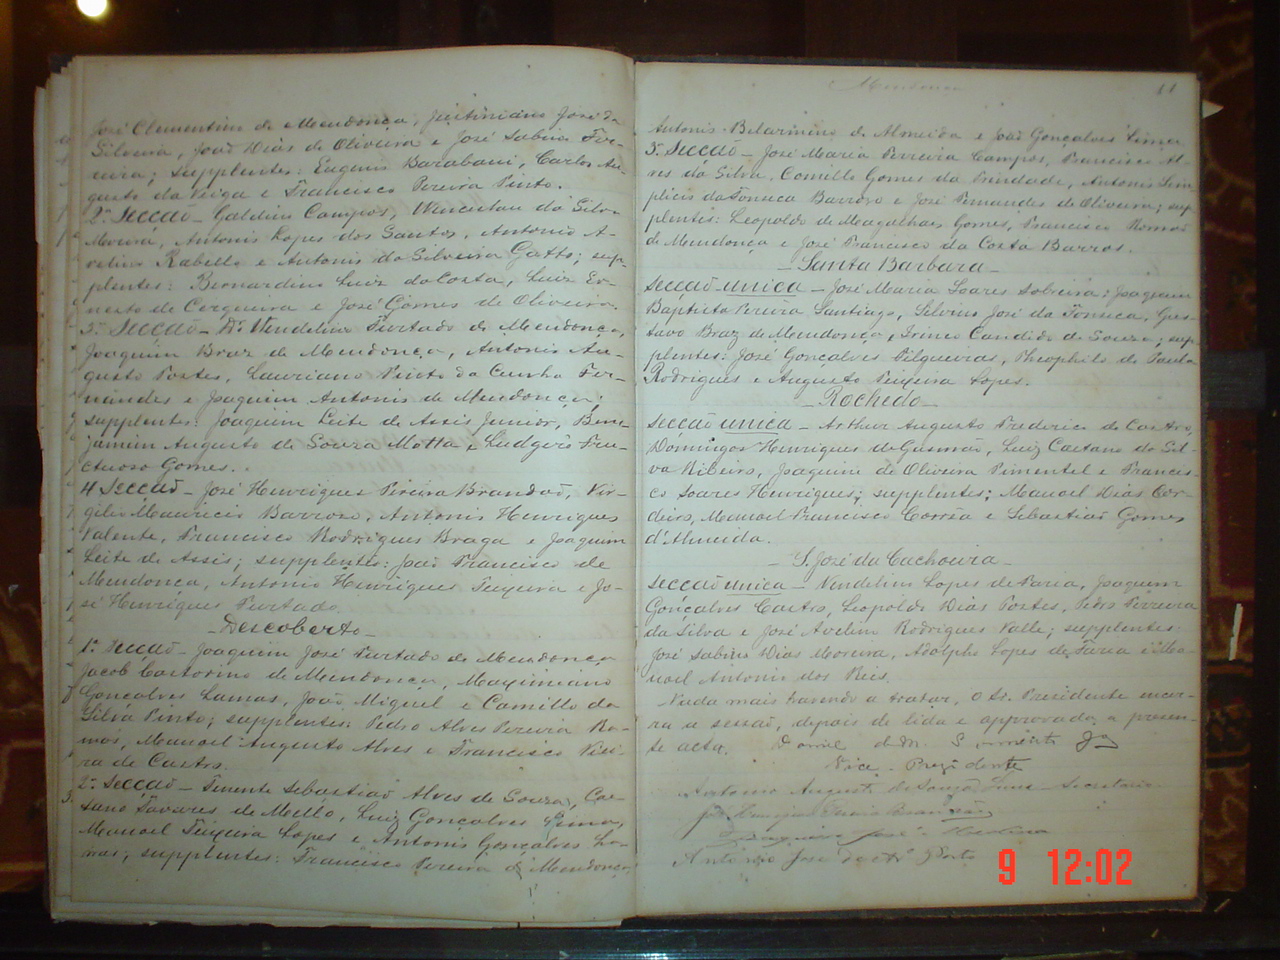 José Clementino de Mendonça, Justiniano José da
Silveira, João Dias de Oliveira e José Sabino Fer-
reira; supplentes: Eugenio Barabani, Carlos Au-
gusto da Veiga e Francisco Pereira Pinto.
2ª Secção - Galdino Campos, Wenceslau da Silva
Moreira, Antonio Lopes dos Santos, Antonio A-
velino Rabello e Antonio da Silveira Gatto; sup-
plentes: Bernardino Luiz da Costa, Luiz Er-
nesto de Cerqueira e José Gomes de Oliveira.
3ª Secção - Dr. Vendelino Furtado de Mendonça,
Joaquim Braz de Mendonça, Antonio Au-
gusto Portes, Lauriano Pinto da Cunha Fer-
nandes e Joaquim Antonio de Mendonça;
supplentes: Joaquim Leite de Assis Junior, Ben-
jamim Augusto de Souza Motta e Ludgero Fru-
ctuoso Gomes.
4 Secção - José Henriques Pereira Brandão, Vir-
gilio Mauricio Barroso, Antonio Henriques
Valente, Francisco Rodrigues Braga e Joaquim
Leite de Assis; supplentes: João Francisco de
Mendonça, Antonio Henriques Teixeira e Jo-
sé Henriques Furtado.
- Descoberto -
1ª Secção - Joaquim José Furtado de Mendonça
Jacob Castorino de Mendonça, Maximiano
Gonçalves Lamas, João Miguel e Camillo da
Silva Pinto; supplentes: Pedro Alves Pereira Ra-
mos, Manoel Augusto Alves e Francisco Viei-
ra de Castro.
2ª Secção - Tenente Sebastião Alves de Souza, Cae-
tano Tavares de Mello, Luiz Gonçalves Lima,
Manoel Teixeira Lopes e Antonio Gonçalves La-
mas; supplentes: Francisco Pereira de Mendonça,
Mendonça
11
Antonio Belarmino de Almeida e João Gonçalves Lima.
3ª Secção - José Maria Ferreira Campos, Francisco Al-
ves da Silva, Camillo Gomes da Trindade, Antonio Sim-
plicio da Fonseca Barrozo e José Fernandes de Oliveira; sup-
plentes: Leopoldo de Magalhães Gomes, Francisco Romão
de Mendonça e José Francisco da Costa Barros.
- Santa Barbara -
Secção unica - José Maria Soares Sobreira, Joaquim
Baptista Pereira Santiago, Silverio José da Fonseca, Gus-
tavo Braz de Mendonça, Irineo Candido de Souza; sup-
plentes: José Gonçalves Filgueiras, Theophilo de Paula
Rodrigues e Augusto Teixeira Lopes.
- Rochedo -
Secção unica - Arthur Augusto Frederico de Castro,
Domingos Henriques de Gusmão, Luiz Caetano da Sil-
va Ribeiro, Joaquim de Oliveira Pimentel e Francis-
co Soares Henriques; supplentes; Manoel Dias Cor-
deiro, Manoel Francisco Corrêa e Sebastião Gomes
d'Almeida.
- S. José da Cachoeira -
Secção unica - Vendelino Lopes de Faria, Joaquim
Gonçalves Castro, Leopoldo Dias Portes, Pedro Ferreira
da Silva e José Avelino Rodrigues Valle; supplentes:
José Sabino Dias Moreira, Adolpho Lopes de Faria e Ma-
noel Antonio dos Reis.
Nada mais havendo a tratar, o Sr. Presidente encer-
ra a sessão, depois de lida e approvada a presen-
te acta. Daniel de M. Sarmento Jor
Vice-Prezidente
Antonio Augusto de Souza Lima - Secretario
José Henriques Pereira Brandão
Joaquim José Medina
Antonio José da Cta Porto
9 12:02